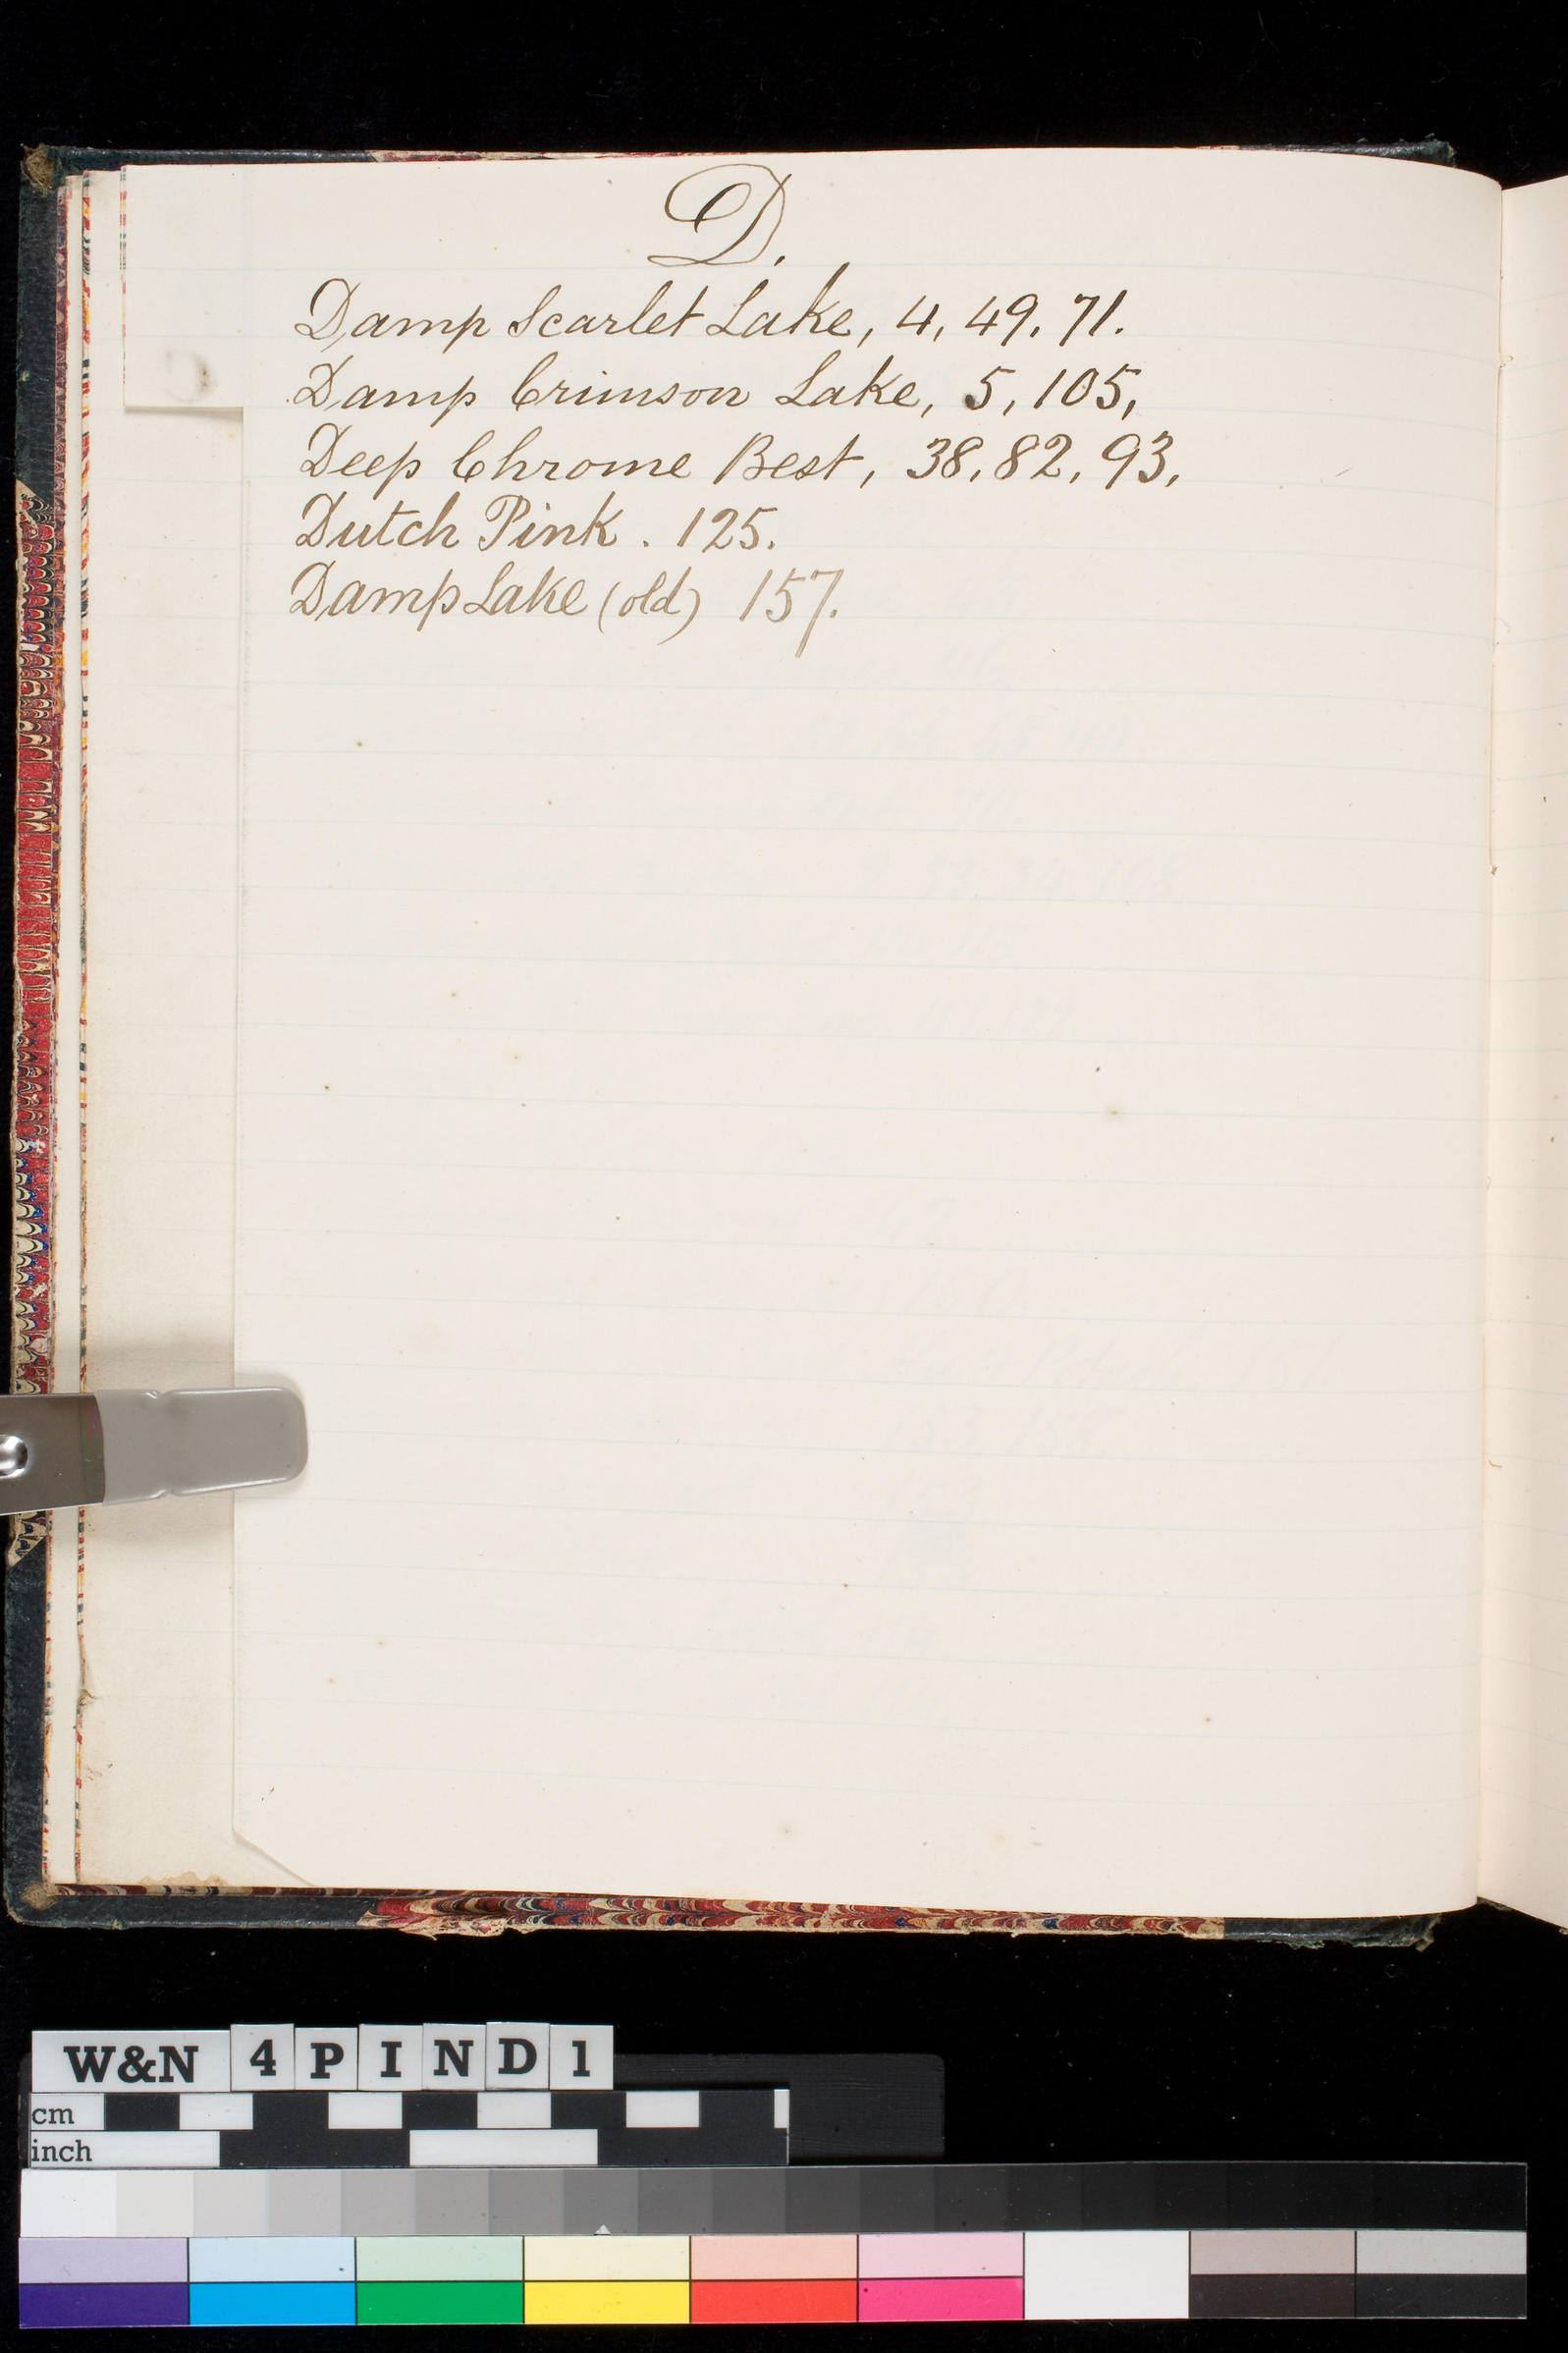 D.
Damp Scarlet Lake, 4, 49. 71.
Damp Crimson Lake, 5, 105,
Deep Chrome Best, 38, 82, 93,
Dutch Pink . 125.
Damp Lake (old) 157.
C
W&N 4 P I N D 1
cm
inch